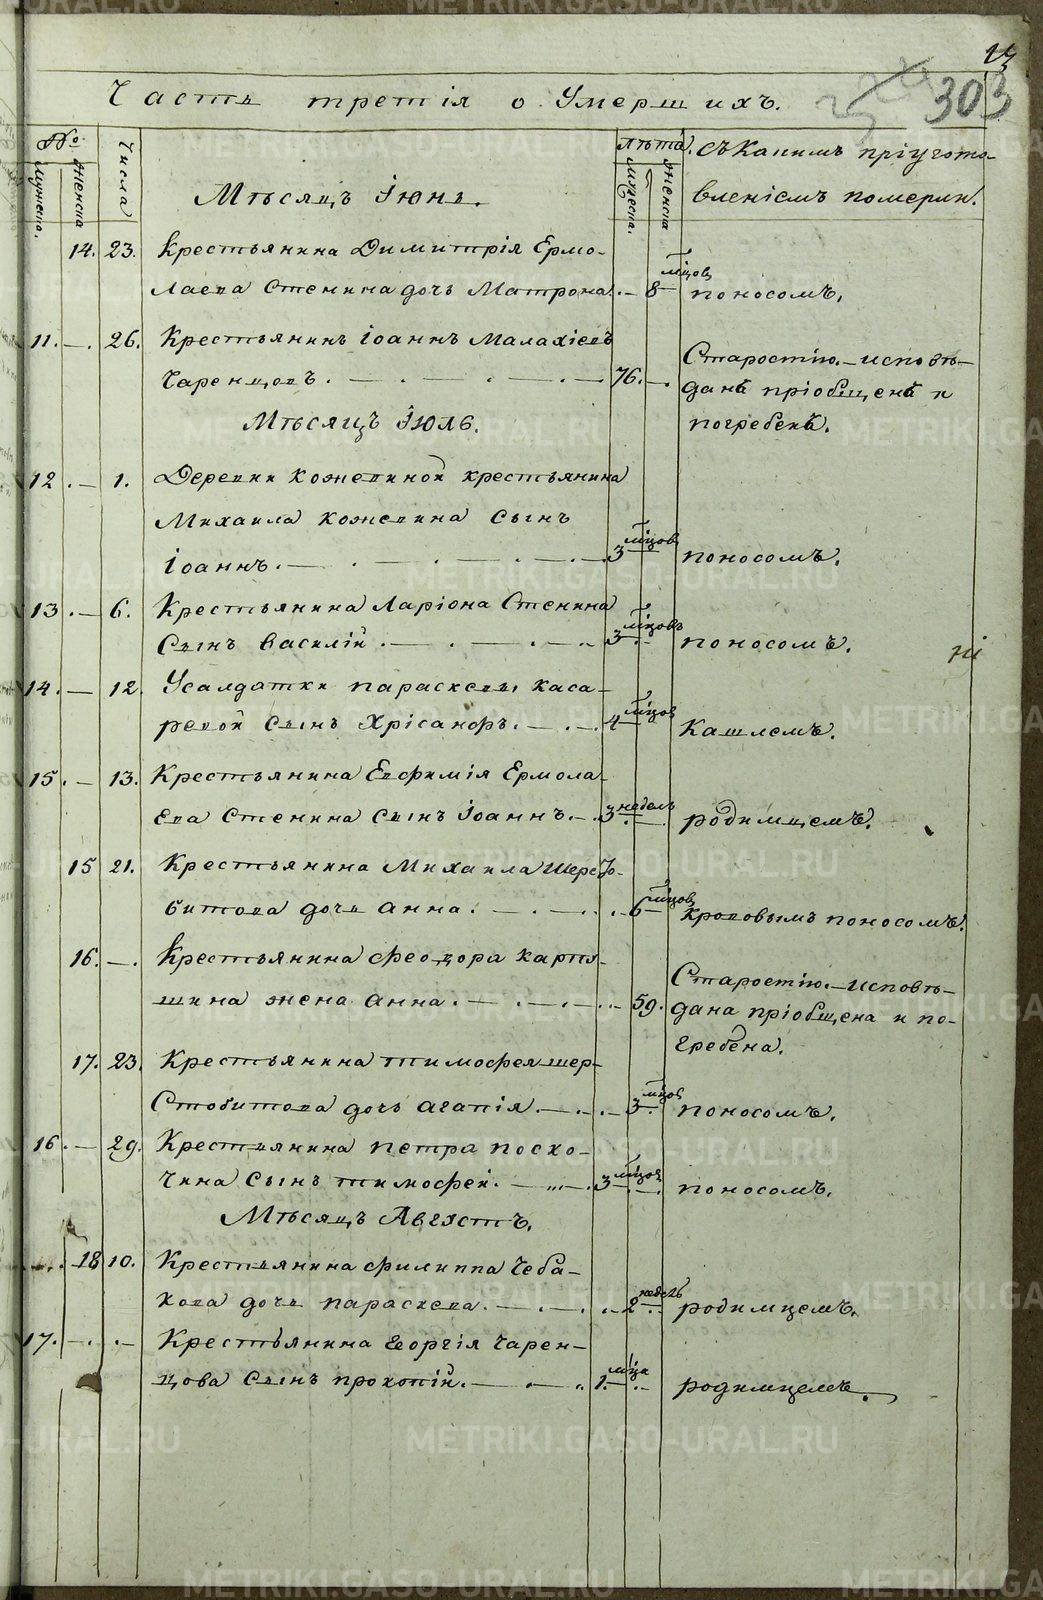 13
303
Часть третія о Умершихъ.
№
мужеска.
женска
Числа
Мѣсяцъ Іюнь.
лѣта.
мужеска.
женска
съ Какимъ пріугото-
вленіемъ померли.
14. 23. Крестьянина Димитрія Ермо-
лаева Стенина дочь Матрона. — 8 мѣцовъ поносомъ.
11. —. 26. Крестьянинъ Іоаннъ Малахіевъ
Чаренцовъ. — 76. —. Старостію. — исповѣ-
данъ пріобщенъ и
погребенъ.
Мѣсяцъ Іюль.
12 . — 1. Деревни Кожевиной крестьянина
Михаила Кожевина сынъ
Іоаннъ. — 3 мѣцовъ поносомъ.
13 . — 6. Крестьянина Ларіона Стенина
Сынъ Василій — 3 мѣцовъ поносомъ.
14. — 12. Усалдатки Параскевы Каса-
ревой сынъ Хрісанфъ. — 4 мѣцовъ Кашлемъ.
15. — 13. Крестьянина Евфимія Ермола-
ева Стенина сынъ Іоаннъ. — 3 недель родимцемъ.
15 21. Крестьянина Михаила Шерсто-
битова дочь Анна. — 6 мѣцовъ крововымъ поносомъ.
16. —. Крестьянина Феодора Карпу-
шина жена Анна. — 59. Старостію. — исповѣ-
дана пріобщена и по-
гребена.
17. 23. Крестьянина Тимофея Шер-
стобитова дочь Агапія. — 3 мѣцовъ поносомъ.
16. — 29. Крестьянина Петра Поско-
чина Сынъ Тимофей. — 3 мѣцовъ поносомъ.
Мѣсяцъ Августъ.
18 10. Крестьянина Филиппа Чеба-
кова дочь Параскева. — 2 недель родимцемъ.
17. — . — Крестьянина Георгія Чарен-
цова Сынъ Прокопій. — 1. мѣца родимцемъ.
METRIKI.GASO-URAL.RU